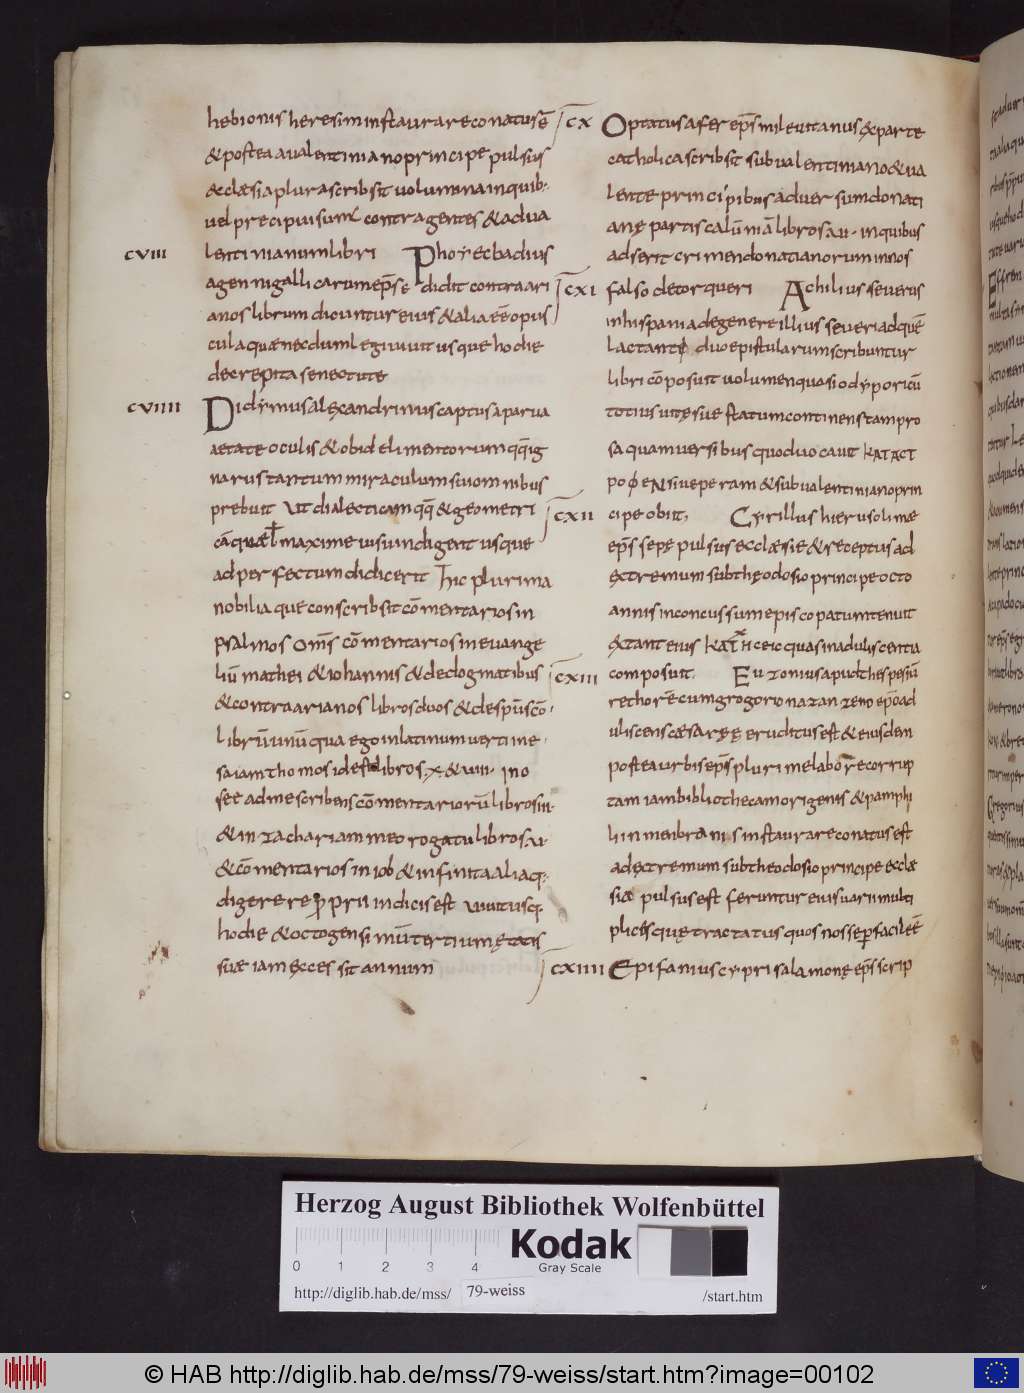 hebionis heresim instaurare conatus ē
& postea aualentiniano principe pulsus
&clæsia plura scribsit uolumina in quib·
uel precipui sunt contra gentes & adua
CVIII
lentinianum libri Phoyecbadius
agennigalli carum eps̄ ędidit contra ari
anos librum dicuntur eius & alia eē opus
cula quæ necdum legi uiuit usque hodie
decrepita senectute
CVIIII
Didymus alęcandrinus captus a parua
aetate oculis & ob id elimentorum qq̄ ig
narus tantum miraculum sui omnibus
prebuit Ut dialecticam qq̄ & geometri
cā quæ maxime uisu indigent usque
ad perfectum didicerit hic plurima
nobilia que conscribsit cōmentarios in
psalmos om̄s cōmentarios in euange
liū mathei & iohannis & de dogmatibus
& contra arianos libros duos & de spū scō·
librū unū qua ego in latinum uerti in e·
saiam thomos idest libros x & uiii· in o
see ad me scribens cōmentariorū libros iii·
& in zachariam meo rogatu libros u·
& cōmentarios in iob & infinita alia q·
digerere p̄prii indicis est uiuit usq·
hodie & octogensimū tertium ętatis
suæ iam ęcces sit annum
CX
Optatus afer eps̄ mileuitanus &parte
catholica scribsit sub ualentiniano & ua
lente principibus aduersum donati
anę partis calūniā libros ui· in quibus
adserit crimen donatianorum in nos
CXI
falso detorqueri Achilius seuerus
in hispania de genere illius seueri ad quē
lactantι duo epistularum scribuntur
libri cōposuit uolumen quasi odyporicū
totius uitę suę statum continens tam pro
sa quam uersibus quod uocauit ΚΑΤΑCΤ
ΡΟΦΕΝ siue peram & sub ualentiniano prin
CXII
cipe obiit, Cyrillus hierusolimę
eps̄ sepę pulsus ecclæsię & receptus ad
ęctremum sub theodosio principe octo
annis inconcussum episcopatum tenuit
&tant eius ΚΑΤΗceic quas in adulis centia
CXIII
composuit. Euzonius apud thespesiū
rethorē cum grogorio nazanzeno epō ad
uliscens cæsaręę eruditus est & eiusdem
postea urbis eps̄ plurime labore corrup
tam iam bibliothecam origenis & pamphi
li in membranis instaurare conatus est
ad ęctremum sub theodosio principe ecclæ
siæ pulsus est feruntur eius uarii multi
plicesquę tractatus quos nosse p̄facile ē
CXIIII
Epifanius cypri salamonę eps̄ scrip
Herzog August Bibliothek Wolfenbüttel
Kodak
Gray Scale
0 1 2 3 4
http://diglib.hab.de/mss/ 79-weiss /start.htm
© HAB http://diglib.hab.de/mss/79-weiss/start.htm?image=00102